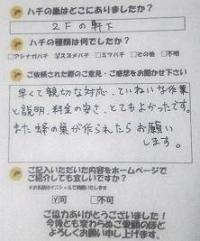 ハチの巣はどこにありましたか?
2Fの軒下
ハチの種類は何でしたか?
アシナガバチ スズメバチ ミツバチ その他 不明
ご依頼された際のご意見・ご感想をお聞かせ下さい
早くて親切な対応、ていねいな作業
と説明、料金の安さ、とてもよかったです。
また蜂の巣が作られたらお願い
します。
ご記入いただいた内容をホームページで
ご紹介しても宜しいですか?
※お名前はイニシャルで掲載いたします
可 不可
ご協力ありがとうございました!
今後とも変わらぬご愛顧のほど
よろしくお願い申し上げます。